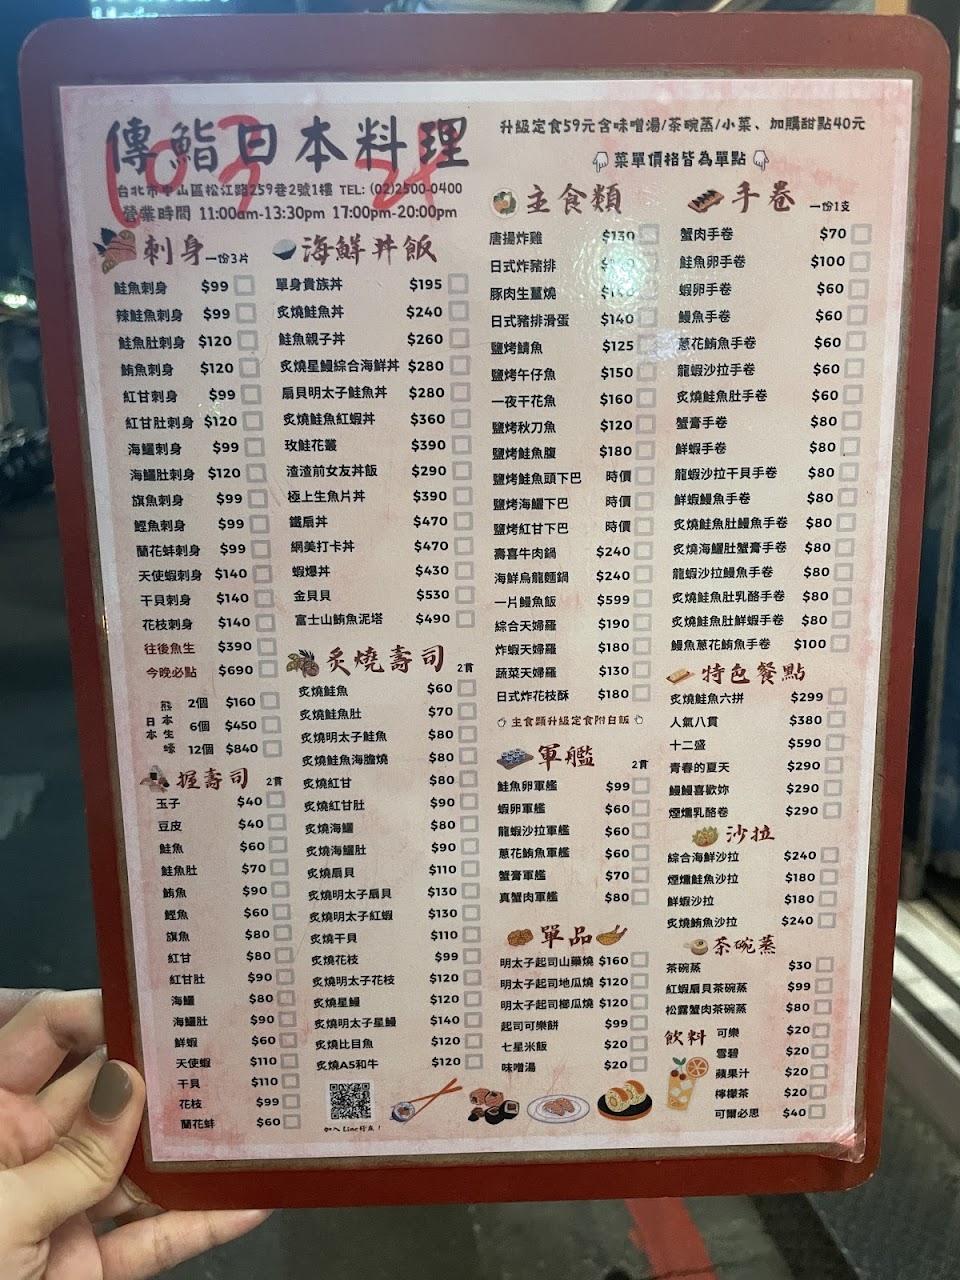 傳鮨日本料理
台北市中山區松江路259巷2號1樓 TEL: (02)2500-0400
營業時間 11:00am-13:30pm 17:00pm-20:00pm
升級定食59元含味噌湯/茶碗蒸/小菜、加購甜點40元
菜單價格皆為單點
刺身 一份3片
鮭魚刺身 $99
辣鮭魚刺身 $99
鮭魚肚刺身 $120
鮪魚刺身 $120
紅甘刺身 $99
紅甘肚刺身 $120
海鱺刺身 $99
海鱺肚刺身 $120
旗魚刺身 $99
鰹魚刺身 $99
蘭花蚌刺身 $99
天使蝦刺身 $140
干貝刺身 $140
花枝刺身 $140
往後魚生 $390
今晚必點 $690
熊本
日本生蠔
2個 $160
6個 $450
12個 $840
握壽司 2貫
玉子 $40
豆皮 $40
鮭魚 $60
鮭魚肚 $70
鮪魚 $90
鰹魚 $60
旗魚 $80
紅甘 $80
紅甘肚 $90
海鱺 $80
海鱺肚 $90
鮮蝦 $60
天使蝦 $110
干貝 $110
花枝 $99
蘭花蚌 $60
海鮮丼飯
單身貴族丼 $195
炙燒鮭魚丼 $240
鮭魚親子丼 $260
炙燒星鰻綜合海鮮丼 $280
扇貝明太子鮭魚丼 $280
炙燒鮭魚紅蝦丼 $360
玫鮭花叢 $390
渣渣前女友丼飯 $290
極上生魚片丼 $390
鐵扇丼 $470
網美打卡丼 $470
蝦爆丼 $430
金貝貝 $530
富士山鮪魚泥塔 $490
炙燒壽司 2貫
炙燒鮭魚 $60
炙燒鮭魚肚 $70
炙燒明太子鮭魚 $80
炙燒鮭魚海膽燒 $80
炙燒紅甘 $80
炙燒紅甘肚 $90
炙燒海鱺 $80
炙燒海鱺肚 $90
炙燒扇貝 $110
炙燒明太子扇貝 $130
炙燒明太子紅蝦 $130
炙燒干貝 $110
炙燒花枝 $99
炙燒明太子花枝 $120
炙燒星鰻 $120
炙燒明太子星鰻 $140
炙燒比目魚 $120
炙燒A5和牛 $120
加入Line好友！
主食類
唐揚炸雞 $130
日式炸豬排
豚肉生薑燒 $140
日式豬排滑蛋 $140
鹽烤鯖魚 $125
鹽烤午仔魚 $150
一夜干花魚 $160
鹽烤秋刀魚 $120
鹽烤鮭魚腹 $180
鹽烤鮭魚頭下巴 時價
鹽烤海鱺下巴 時價
鹽烤紅甘下巴 時價
壽喜牛肉鍋 $240
海鮮烏龍麵鍋 $240
一片鰻魚飯 $599
綜合天婦羅 $190
炸蝦天婦羅 $180
蔬菜天婦羅 $130
日式炸花枝酥 $180
主食類升級定食附白飯
軍艦 2貫
鮭魚卵軍艦 $99
蝦卵軍艦 $60
龍蝦沙拉軍艦 $60
蔥花鮪魚軍艦 $60
蟹膏軍艦 $70
真蟹肉軍艦 $80
單品
明太子起司山藥燒 $160
明太子起司地瓜燒 $120
明太子起司櫛瓜燒 $120
起司可樂餅 $99
七星米飯 $20
味噌湯 $20
手卷 一份1支
蟹肉手卷 $70
鮭魚卵手卷 $100
蝦卵手卷 $60
鰻魚手卷 $60
蔥花鮪魚手卷 $60
龍蝦沙拉手卷 $60
炙燒鮭魚肚手卷 $60
蟹膏手卷 $80
鮮蝦手卷 $80
龍蝦沙拉干貝手卷 $80
鮮蝦鰻魚手卷 $80
炙燒鮭魚肚鰻魚手卷 $80
炙燒海鱺肚蟹膏手卷 $80
龍蝦沙拉鰻魚手卷 $80
炙燒鮭魚肚乳酪手卷 $80
炙燒鮭魚肚鮮蝦手卷 $80
鰻魚蔥花鮪魚手卷 $100
特色餐點
炙燒鮭魚六拼 $299
人氣八貫 $380
十二盛 $590
青春的夏天 $290
鰻鰻喜歡妳 $290
煙燻乳酪卷 $290
沙拉
綜合海鮮沙拉 $240
煙燻鮭魚沙拉 $180
鮮蝦沙拉 $180
炙燒鮪魚沙拉 $240
茶碗蒸
茶碗蒸 $30
紅蝦扇貝茶碗蒸 $99
松露蟹肉茶碗蒸 $80
飲料
可樂 $20
雪碧 $20
蘋果汁 $20
檸檬茶 $20
可爾必思 $40